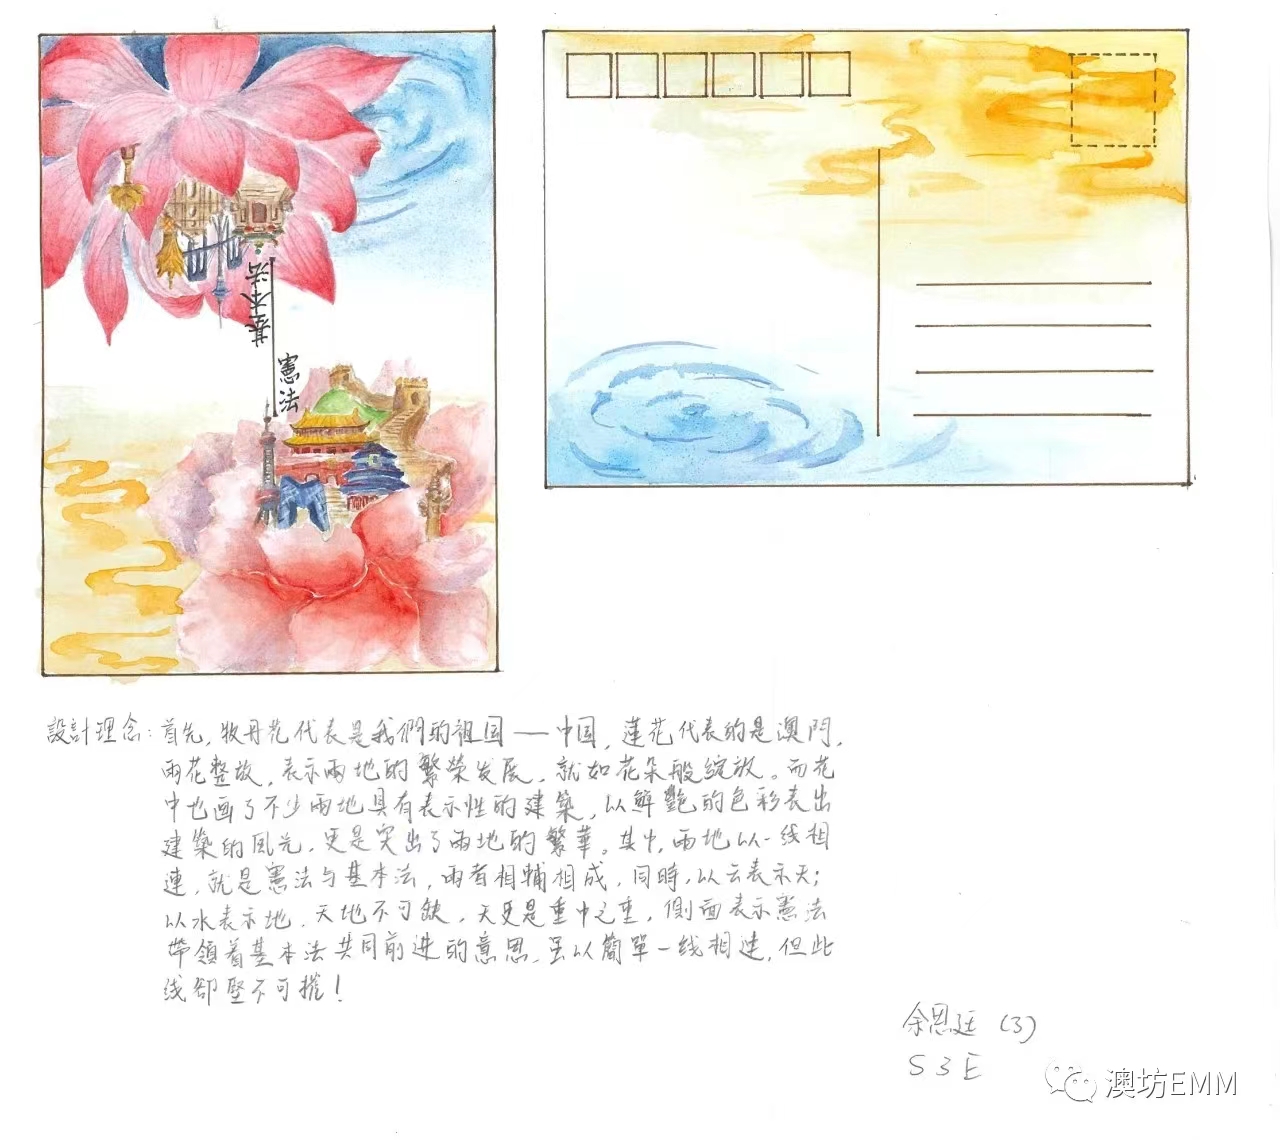 基本法
憲法
設計理念：首先，牧丹花代表是我們的祖国——中国，蓮花代表的是澳門，
兩花整放，表示兩地的繁榮发展，就如花朵般綻放。而花
中也画了不少兩地具有表示性的建築，以鮮艷的色彩表出
建築的風光，更是突出了兩地的繁華。其中，兩地以一线相
連，就是憲法与基本法，兩者相輔相成，同時，以云表示天；
以水表示地，天地不可缺，天更是重中之重，側面表示憲法
帶領着基本法共同前进的意思，虽以簡單一线相连，但此
线卻堅不可摧！
余思廷（3）
S3E
澳坊EMM